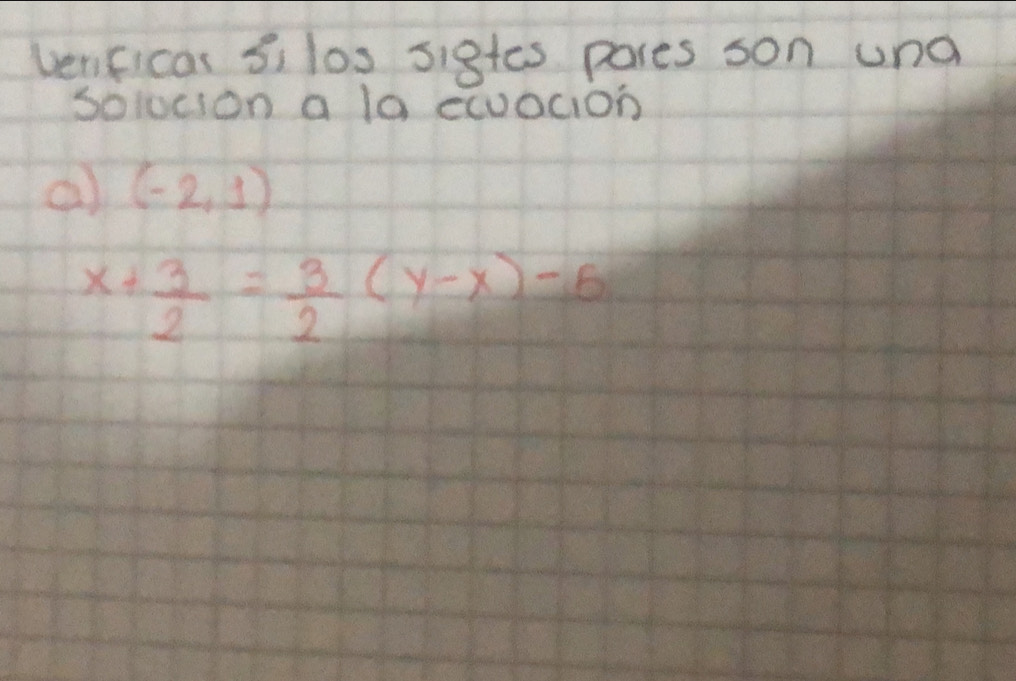 Verificar si los sigtes pares son una
solucion a la ecuación
a) (-2, 1)
x + 3/2 = 3/2 (y-x) - 5